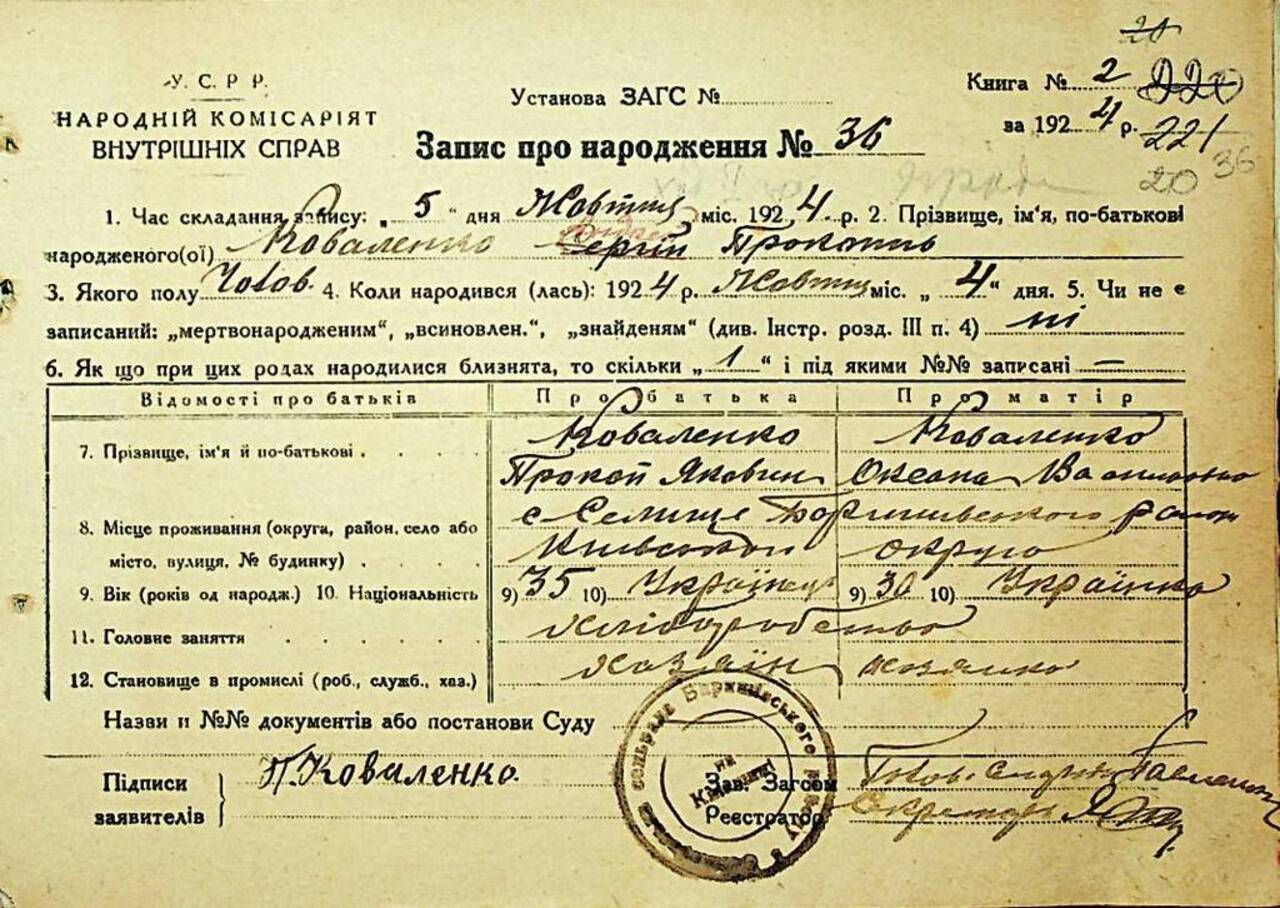 20
У. С. Р Р.
НАРОДНІЙ КОМІСАРІЯТ
ВНУТРІШНІХ СПРАВ
Установа ЗАГС №
Книга № 2 220
за 1924 р. 221
Запис про народження № 36
20 36
1. Час складання запису: „ 5 “ дня Жовтня міс. 1924 р. 2. Прізвище, ім'я, по-батькові
народженого(ої) Коваленко Сергій
3. Якого полу Чолов. 4. Коли народився (лась): 1924 р. Жовтня міс. „ 4 “ дня. 5. Чи не є
записаний: „мертвонародженим“, „всиновлен.“, „знайденям“ (див. Інстр. розд. III п. 4) ні
6. Як що при цих родах народилися близнята, то скільки „ 1 “ і під якими №№ записані —
Відомості про батьків Про батька Про матір
7. Прізвище, ім'я й по-батькові Коваленко Коваленко
Прокоп Якович Оксана Василівна
8. Місце проживання (округа, район, село або с Селище Баришівського району
місто, вулиця, № будинку) Київської округи
9. Вік (років од народж.) 10. Національність 9) 35 10) Українець 9) 30 10) Українка
11. Головне заняття Хліборобство
12. Становище в промислі (роб., служб., хаз.) хазяїн хазяйка
Назви и №№ документів або постанови Суду
Підписи заявителів П. Коваленко
Зав. Загсом Голов.
Реєстратор Секретарь
сольрада Баришівського району
на Київщині